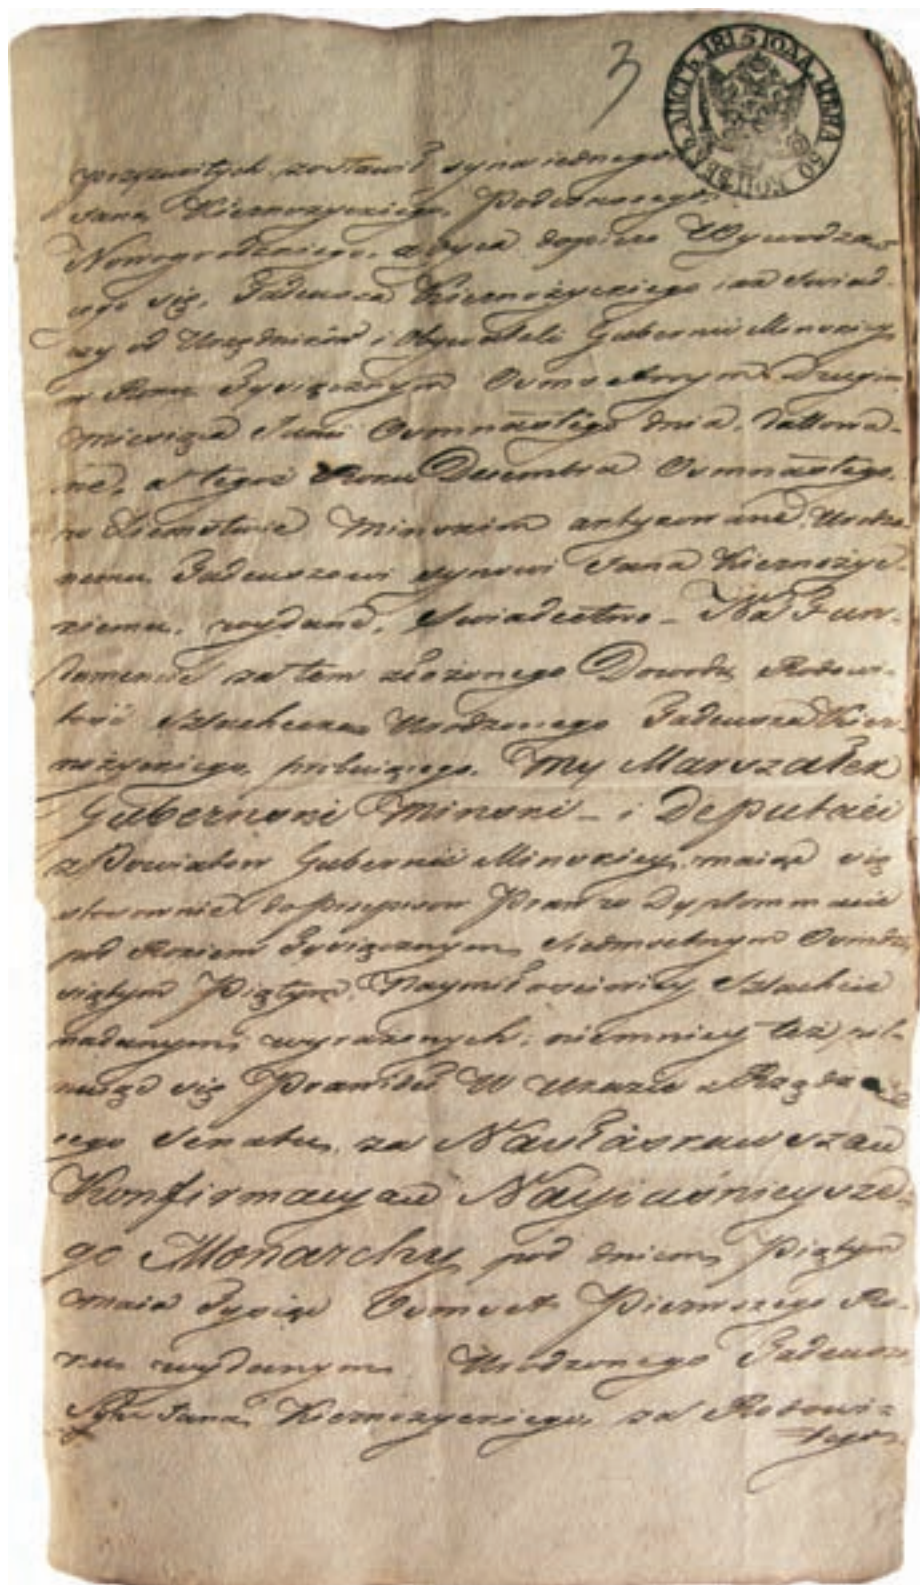 3
ЛИСТЪ 1815 ГОДА ЦѢНА 50 КОПѢЕКЪ
przyzwoitych zostawił syna iednego
Jana Kiernozyckiego, Podczaszego
Nowogrodzkiego, oyca dopiero Wywodzą-
cego się, Tadeusza Kiernożyckiego, na Swiad-
czy od Urzędników i Obywateli Gubernii Minskiey
w Roku Tysiącznym Osmsetnym Drugim
miesiąca Junii Osmnastego dnia, dattowa-
ne, a tegoż Roku Decembra Osmnastego,
w Ziemstwie Minskim aktykowane, Urodzo-
nemu Tadeuszowi synowi Jana Kiernożyc-
kiemu, wydane, Swiadectwo - Na Fun-
damencie za tem złożonego Dowodu Rodowi-
tość Szlachecką Urodzonego Tadeusza Kier-
nożyckiego, probuiącego, My Marszałek
Gubernski Minski - i Deputaci
z Powiatow Gubernii Minskiey, maiąc się
stosownie do Przepisow Praw w Dyplommacie
pod Rokiem Tysiącznym Siedmsetnym Osmdzie
siątym Piątym, Naymiłościwiey Szlachcie
nadanym, wyrażonych, niemniey też pil-
nuiąc się Prawideł W Ukazie z Rządzą
cego Senatu, za
Konfirmacyą Nayiaśnieysze-
go Monarchy, pod dniem Piątym
maia Tysiąc Osmset Pierwszego Ro-
ku wydanym Urodzonego Tadeusza
Syna Jana Kiernozyckiego, za Rodowi-
tego